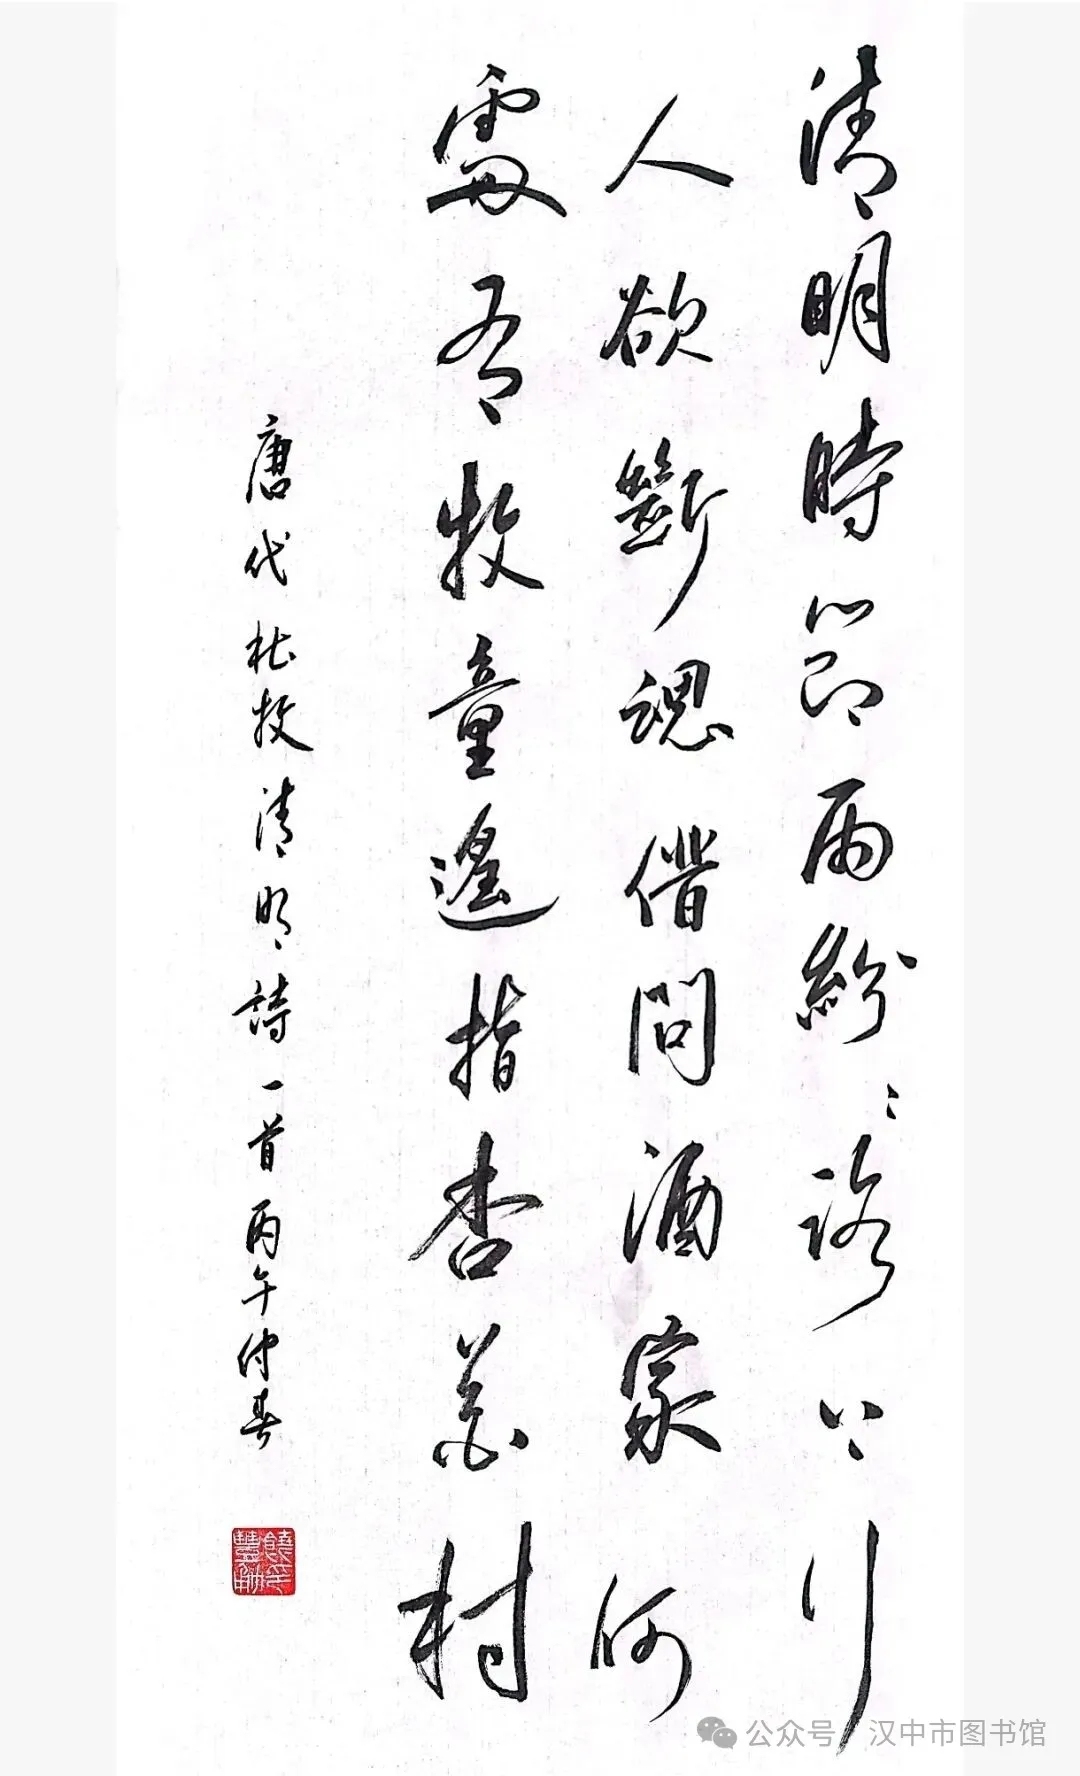 清明時節雨紛〻路上行
人欲斷魂借問酒家何
處有牧童遙指杏花村
唐代杜牧清明詩一首丙午仲春
公众号 / 汉中市图书馆